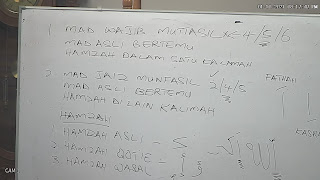 1. MAD WAJIB MUTTASIL 4/5/6
MAD ASLI BERTEMU
HAMZAH DALAM SATU KALIMAH
2. MAD JAIZ MUNFASIL 2/4/5
MAD ASLI BERTEMU
HAMZAH DI LAIN KALIMAH
FATHAH
KASRA
HAMZAH
1. HAMZAH ASLI
2. HAMZAH QOTIE
3. HAMZAH WASAL
CAM